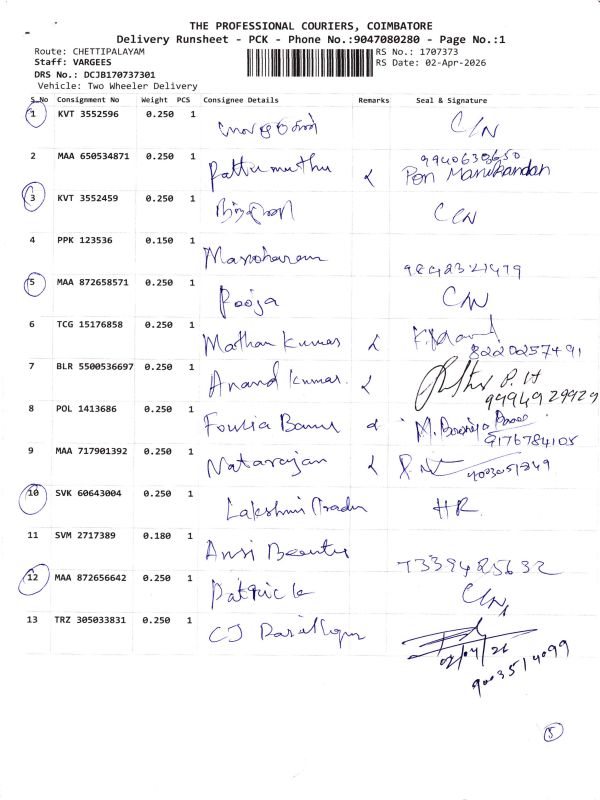 THE PROFESSIONAL COURIERS, COIMBATORE
Delivery Runsheet - PCK - Phone No.:9047080280 - Page No.:1
Route: CHETTIPALAYAM RS No.: 1707373
Staff: VARGEES RS Date: 02-Apr-2026
DRS No.: DCJB170737301
Vehicle: Two Wheeler Delivery
S.No Consignment No Weight PCS Consignee Details Remarks Seal & Signature
1 KVT 3552596 0.250 1 C/N
2 MAA 650534871 0.250 1 Pattumuthu Pon Manikandan
3 KVT 3552459 0.250 1
4 PPK 123536 0.150 1 Manoharan
5 MAA 872658571 0.250 1 Pooja C/N
6 TCG 15176858 0.250 1 Mathan Kumar 8220257491
7 BLR 5500536697 0.250 1 Anand Kumar
8 POL 1413686 0.250 1 9176784105
9 MAA 717901392 0.250 1 Natarajan
10 SVK 60643004 0.250 1 Lakshmi HR
11 SVM 2717389 0.180 1 Ansi Beauty 7339485632
12 MAA 872656642 0.250 1 Patrick C/N
13 TRZ 305033831 0.250 1 CJ
02/04/26
9003514099
5